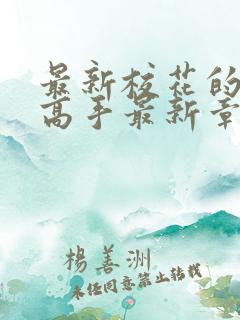 最新校花的
高手最新章
楊善洲
未经同意禁止转载